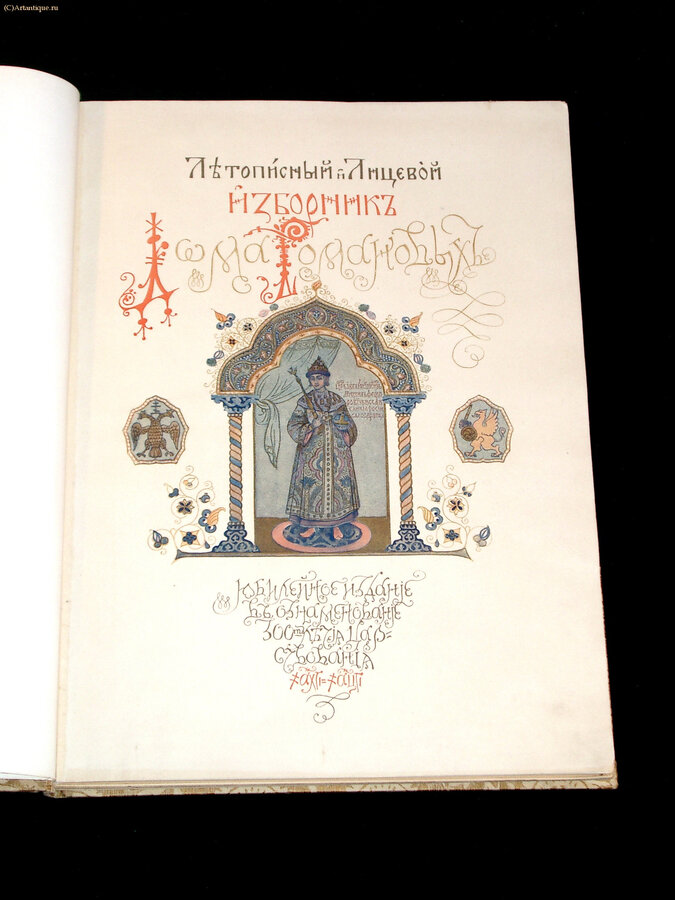 (C)Artantique.ru
Лѣтопи́сный и҆ Лицево́й
И҆ЗБОРНИКЪ
Дѡма Романовыхъ
Юбиле́йное изданіе
въ ознаменованіе
300тлѣтія цар-
ствованія